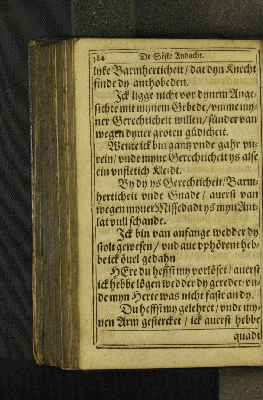 384 De Söste Andacht.
lyke Barmherticheit / dat dyn Knecht
finde dy anthobeden.
Jck ligge nicht vor dynem Ange-
sichte mit mynem Gebede / vmme my-
ner Gerechticheit willen / sünder van
wegen dyner groten güdicheit.
Wente ick bin gantz vnde gahr vn-
rein / vnde myne Gerechticheit ys alse
ein vnfletich Kleidt.
By dy ys Gerechticheit / Barm-
herticheit vnde Gnade / auerst van
wegen myner Missedadt ys myn Ant-
lat vull schande.
Jck bin van anfange wedder dy
stolt gewesen / vnd ane vphörent heb-
be ick öuel gedahn
HEre du heffst my vorlöset / auerst
ick hebbe lögen wedder dy geredet / vn-
de myn Herte was nicht faste an dy.
Du heffst my gelehret / vnde my-
nen Arm gestercket / ick auerst hebbe
quadt